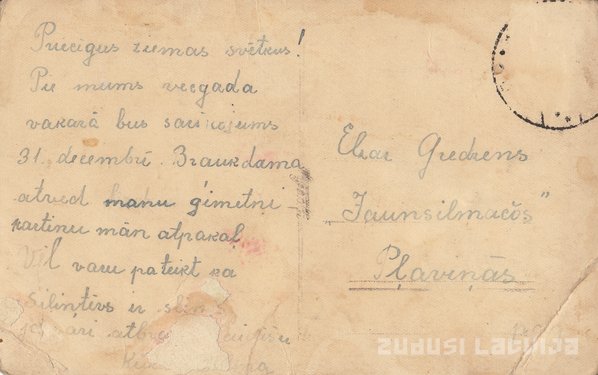 Priecīgus ziemas svētkus!
Pie mums vecgada
vakarā bus sarīkojums
31. decembrī. Braukdama
atved manu ģimetni-
kartinu mān atpakaļ
Vēl varu pateikt ka
Silintēvs ir
Elzai Gredzens
Jaunsilmačos"
Pļaviņās
zudusi Latvija